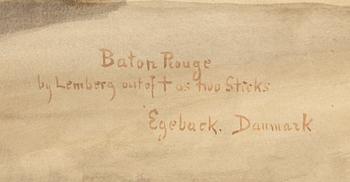 Baton Rouge
by Lemberg out of † as two Sticks
Egeback. Danmark